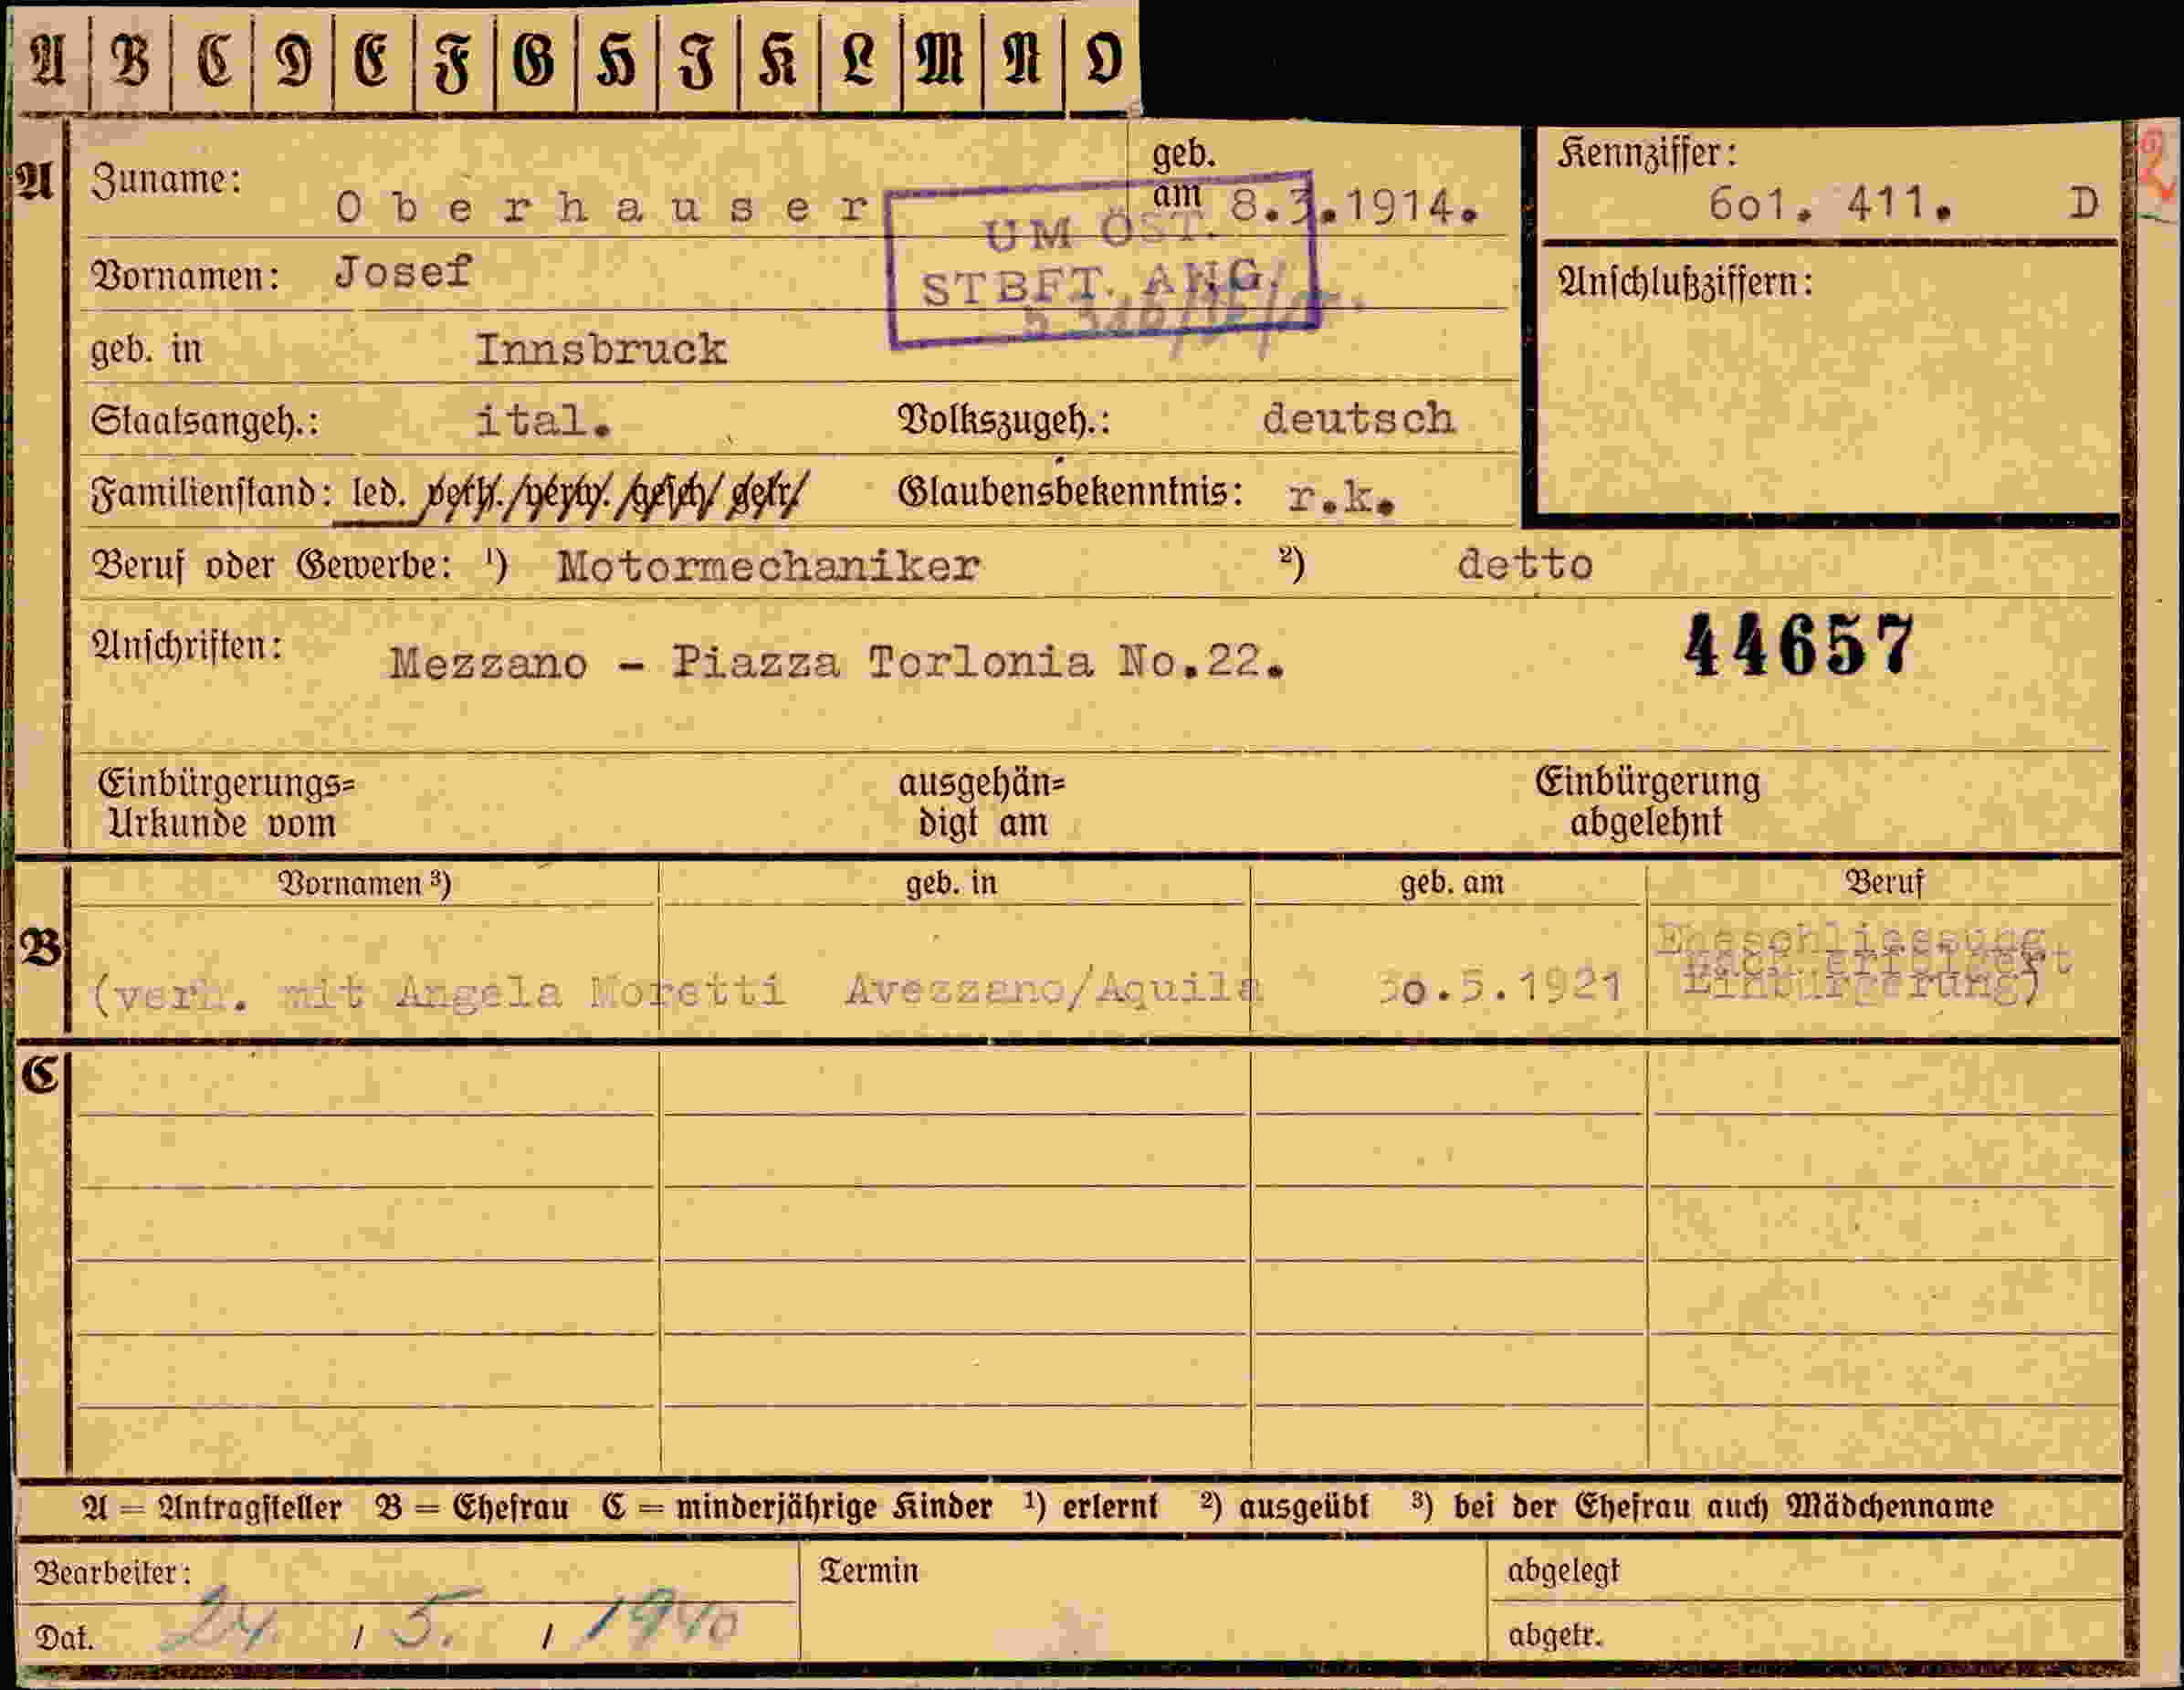 A B C D E F G H I K L M N O
A Zuname: Oberhauser geb. am 8.3.1914.
Kennziffer: 601. 411. D
UM ÖST. STBFT. ANG.
Vornamen: Josef
Anschlußziffern:
geb. in Innsbruck
Staatsangeh.: ital. Volkszugeh.: deutsch
Familienstand: led. verh./verw./gesch/getr/ Glaubensbekenntnis: r.k.
Beruf oder Gewerbe: ¹) Motormechaniker ²) detto
Anschriften: Mezzano - Piazza Torlonia No.22. 44657
Einbürgerungs= Urkunde vom ausgehän= digt am Einbürgerung abgelehnt
B Vornamen ³) geb. in geb. am Beruf
(verh. mit Angela Moretti Avezzano/Aquila 30.5.1921 Eheschliessung nach erfolgt Einbürgerung)
C
A = Antragsteller B = Ehefrau C = minderjährige Kinder ¹) erlernt ²) ausgeübt ³) bei der Ehefrau auch Mädchenname
Bearbeiter: Termin abgelegt
Dat. 24. / 5. / 1940 abgetr.